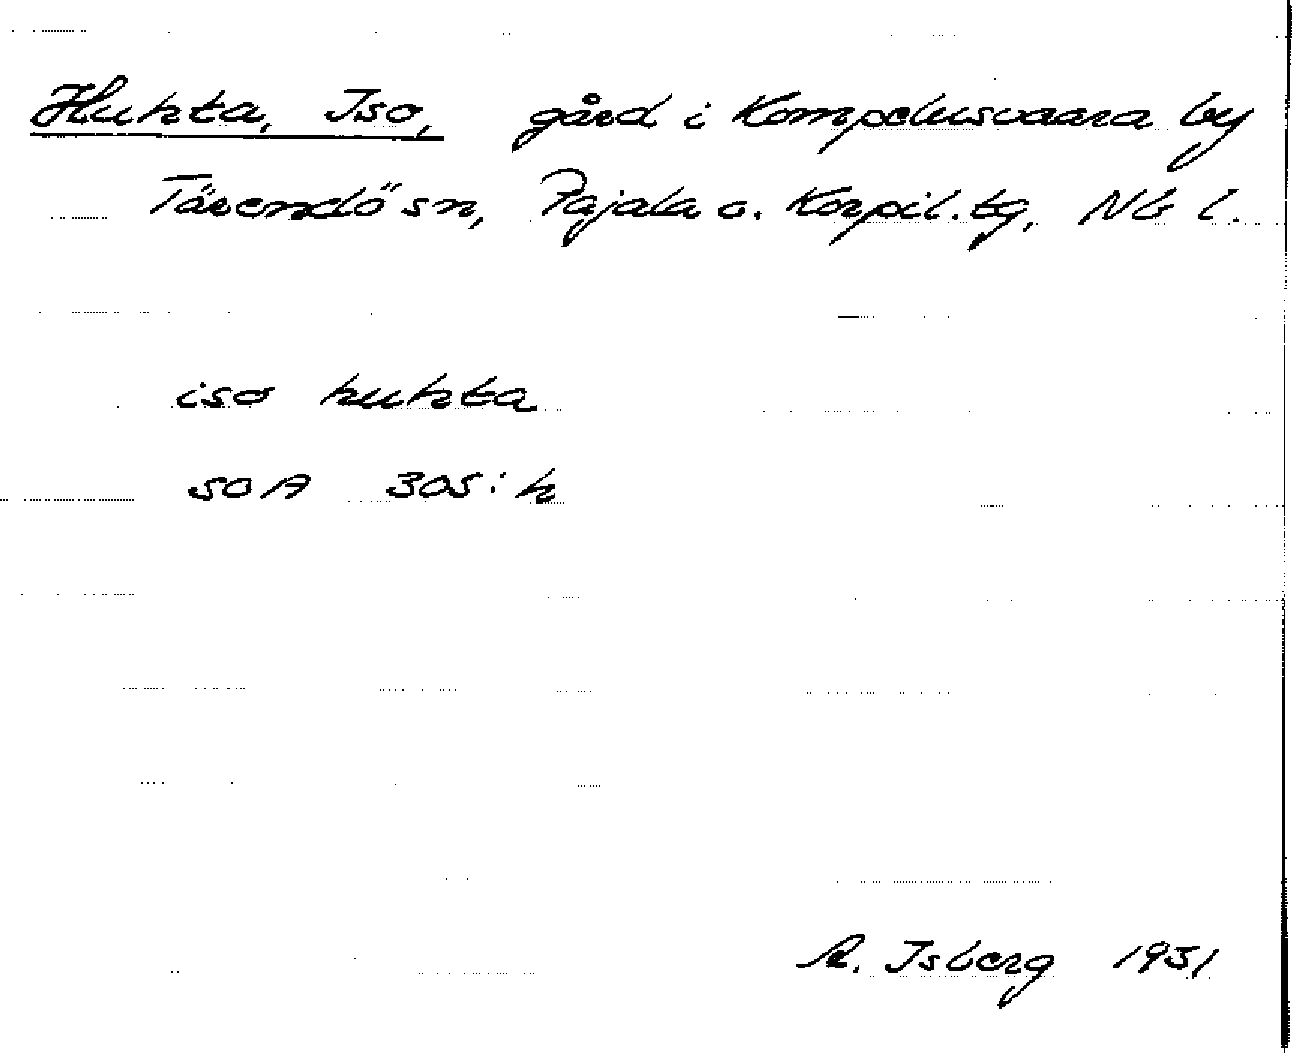 Huhta, Iso, gård i Kompelusvaara by
Tärendö sn, Pajala o. Korpil. tg, Nb l.
iso huhta
SOA 305:h
A. Isberg 1931